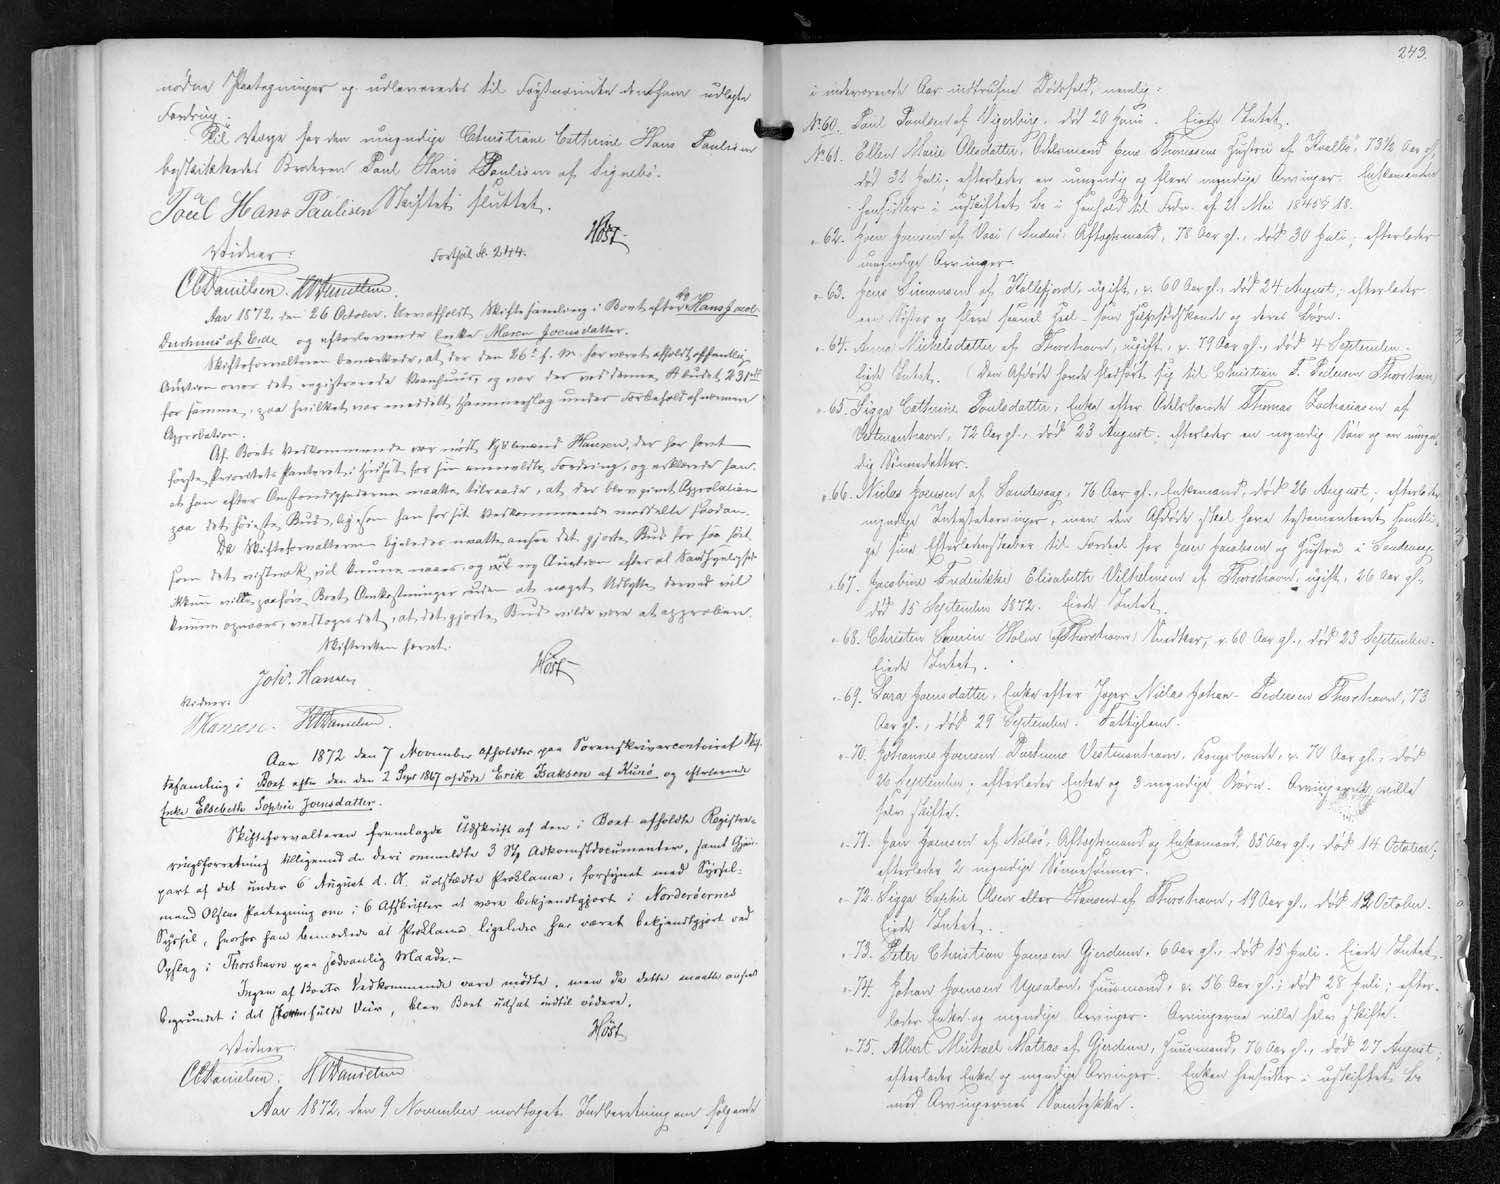 nødne Paategninger og udleveredes til Føgtnævnte den ham udlagte
Fordring.
Til Værge for den umyndige Christiane Cathrine Hans Paulisen
beskikkedes Broderen Poul Hans Paulisen af Signebø.
Poul Hans Paulisen Skiftet sluttet.
Høst
Vidner:
Fortsat S. 244.
CCDanielsen. HDanielsen.
Aar 1872, den 26 October, blev afholdt Skiftesamling i Boet efter Hans Jacob
Durhuus af Eide og efterlevende Enke Maren Joensdatter.
Skifteforvalteren bemærkede, at der den 26de f. M. har været afholdt offentlig
Auction over det registrerede Vaanhuus, og var der ved denne budet 231
for samme, paa hvilket var meddelt Hammerslag under Forbehold af nærmere
Approbation.
Af Boets Vedkommende var mødt Kjøbmand Hansen, der har havt
første Prioritets Panteret i Huset for sin anmeldte Fordring, og erklærede han,
at han efter Omstændighederne maatte tilraade, at der blev givet Approbation
paa det høieste Bud, ligesom han for sit Vedkommende meddelte saadan.
Da Skifteforvalteren ligeledes maatte ansee det gjorte Bud for saa høit
som det vistnok vil kunne naaes, og en ny Auction efter al Sandsynlighed
ikkun ville paaføre Boet Omkostninger uden at noget Udbytte derved vil
kunne opnaaes, vedtoges det, at det gjorte Bud vilde være at approbere.
Skifteretten hævet.
Høst
Johs. Hansen
Vidner:
Hansen. HDanielsen.
Aar 1872 den 7 November afholdtes paa Sorenskrivercontoiret Skif-
tesamling i Boet efter den den 2 Sept 1867 afdøde Erik Isaksen af Kunø og efterlevende
Enke Elsebeth Sophie Joensdatter.
Skifteforvalteren fremlagde Udskrift af den i Boet afholdte Registre-
ringsforretning tilligemed de deri ommeldte 3 Stk Adkomstdocumenter, samt Gjen-
part af det under 6 August d. A. udstædte Proklama, forsynet med Syssel-
mand Olsens Paategning om i 6 Afskrifter at være bekjendtgjort i Norderøernes
Syssel, hvorhos han bemærkede at Proklama ligeledes har været bekjendtgjort ved
Opslag i Thorshavn paa sædvanlig Maade.-
Ingen af Boets Vedkommende vare mødte, men da dette maatte ansees
begrundet i det stormfulde Veir, blev Boet udsat indtil videre.
Høst
Vidner:
CCDanielsen. HDanielsen
Aar 1872, den 9 November modtoges Indberetning om følgende
243.
i indeværende Aar indtrufne Dødsfald, nemlig:
No 60. Poul Poulsen af Vigerbirg, død 20 Juni. Eiede Intet.
No 61. Ellen Marie Olesdatter, Odelsmand Jens Thomsens Hustru af "Kvalbø", 73½ Aar gl,
død 21 Juli; efterleder en umyndig og flere myndige Arvinger. Enkemanden
hensidder i uskiftet Bo i Henhold til Frdn. af 21 Mai 1845 § 18.
" 62. Joen Joensen af Vaai (Suderø), Aftægtsmand, 78 Aar gl., død 30 Juli; efterleder
umyndige Arvinger.
" 63. Jens Simonsen af Kollefjord, ugift, c. 60 Aar gl., død 24 August; efterleder
en Søster og flere saavel Hel- som Halvsødskende og deres Børn.
" 64. Anna Michelsdatter af Thorshavn, ugift, c. 79 Aar gl., død 4 September.
Eiede Intet. (Den Afdøde havde fledført sig til Christian F. Petersen Thorshavn)
" 65. Sigga Cathrine Poulsdatter, Enke efter Odelsbonde Thomas Zachariasen af
Vestmanhavn, 72 Aar gl., død 23 August; efterleder en myndig Søn og en umyn-
dig Sønnedatter.
" 66. Niclas Joensen af Sandevaag, 76 Aar gl., Enkemand, død 26 August; efterleder
myndige Intestatarvinger, men den Afdøde skal have testamenteret samtli-
ge sine Efterladenskaber til Fordeel for Joen Jacobsen og Hustru i Sandevaag
" 67. Jacobine Fredrikke Elisabeth Vilhelmsen af Thorshavn, ugift, 26 Aar gl.,
død 15 September 1872. Eiede Intet.
" 68. Christen Severin Holm (af Thorshavn) Snedker, c. 60 Aar gl., død 23 September.
Eiede Intet.
" 69. Sara Joensdatter, Enke efter Jæger Niclas Johan Pedersen Thorshavn, 73
Aar gl., død 29 September. Fattiglem.
" 70. Johannes Joensen Durhuus Vestmanhavn, Kongsbonde, c. 70 Aar gl., død
26 September; efterleder Enke og 3 myndige Børn. Arvingerne ville
selv skifte.
" 71. Joen Joensen af Nolsø, Aftægtsmand og Enkemand, 85 Aar gl., død 14 October;
efterleder 2 myndige Sønnesønner.
" 72. Sigga Sophie Olsen eller Hansen af Thorshavn, 19 Aar gl., død 12 October.
Eiede Intet.
" 73. Peter Christian Joensen Gjerdum, 6 Aar gl., død 15 Juli. Eiede Intet.
" 74. Johan Joensen Upsalon, Huusmand, c. 56 Aar gl.; død 28 Juli; efter-
leder Enke og myndige Arvinger. Arvingerne ville selv skifte.
" 75. Albert Michael Matras af Gjerdum, Huusmand, 76 Aar gl., død 27 August;
efterleder Enke og myndige Arvinger. Enken hensidder i uskiftet Bo
med Arvingernes Samtykke.